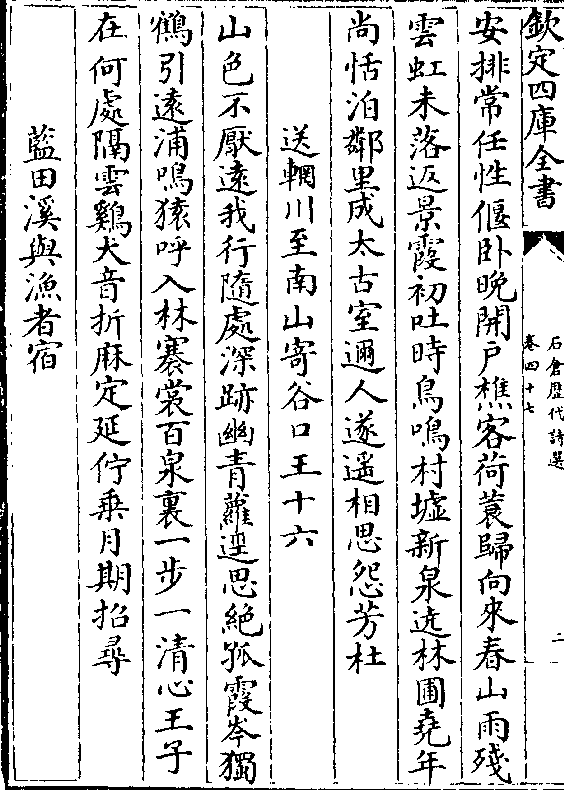 欽定四庫全書
石倉歷代詩選
卷四十七
二
安排常任性偃卧晚開戸樵客荷蓑歸向來春山雨殘
雲虹未落返景霞初吐時鳥鳴村墟新泉遶林圃堯年
尚恬泊鄰里成太古室邇人遂遥相思怨芳杜
送輞川至南山寄谷口王十六
山色不厭逺我行隨處深跡幽青蘿逕思絶孤霞岑獨
鶴引逺浦鳴猿呼入林褰裳百泉裏一步一清心王子
在何處隔雲鷄犬音折麻定延佇乗月期招尋
藍田溪與漁者宿